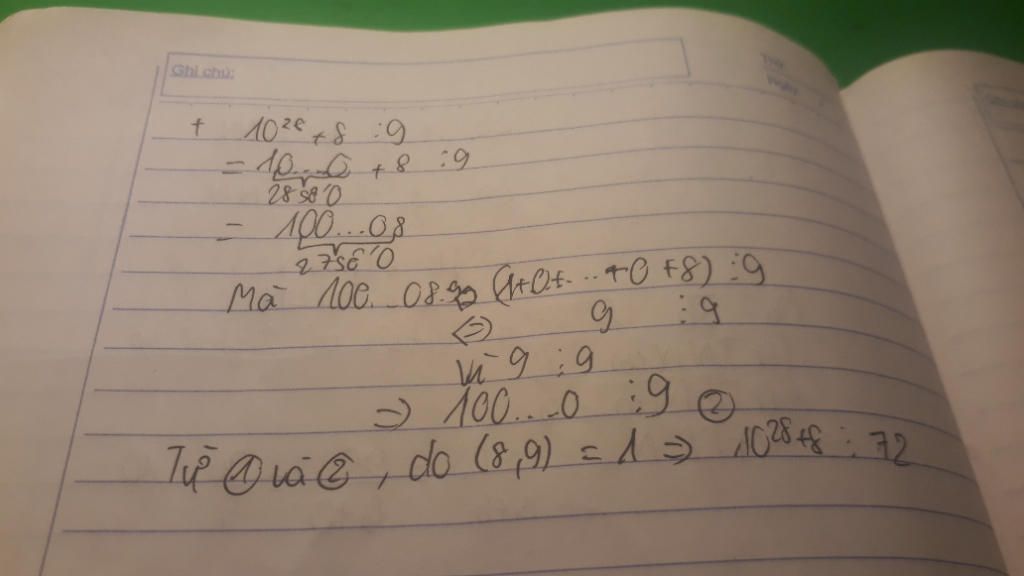 Ghi chú:
+ 10²⁸ + 8 ⋮ 9
= 10...0 + 8 ⋮ 9
28 số 0
= 100...08
27 số 0
Mà 100...08 ⋮ 9 ⇔ (1+0+...+0+8) ⋮ 9
⇔ 9 ⋮ 9
Vì 9 ⋮ 9
⇒ 100....0 ⋮ 9 ②
Từ ① và ②, do (8,9) = 1 ⇒ 10²⁸+8 ⋮ 72